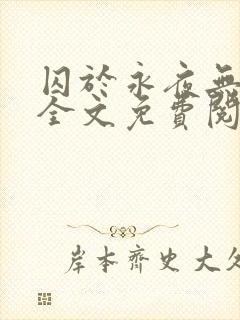 囚於永夜無
全文免費閱
岸本齊史大久